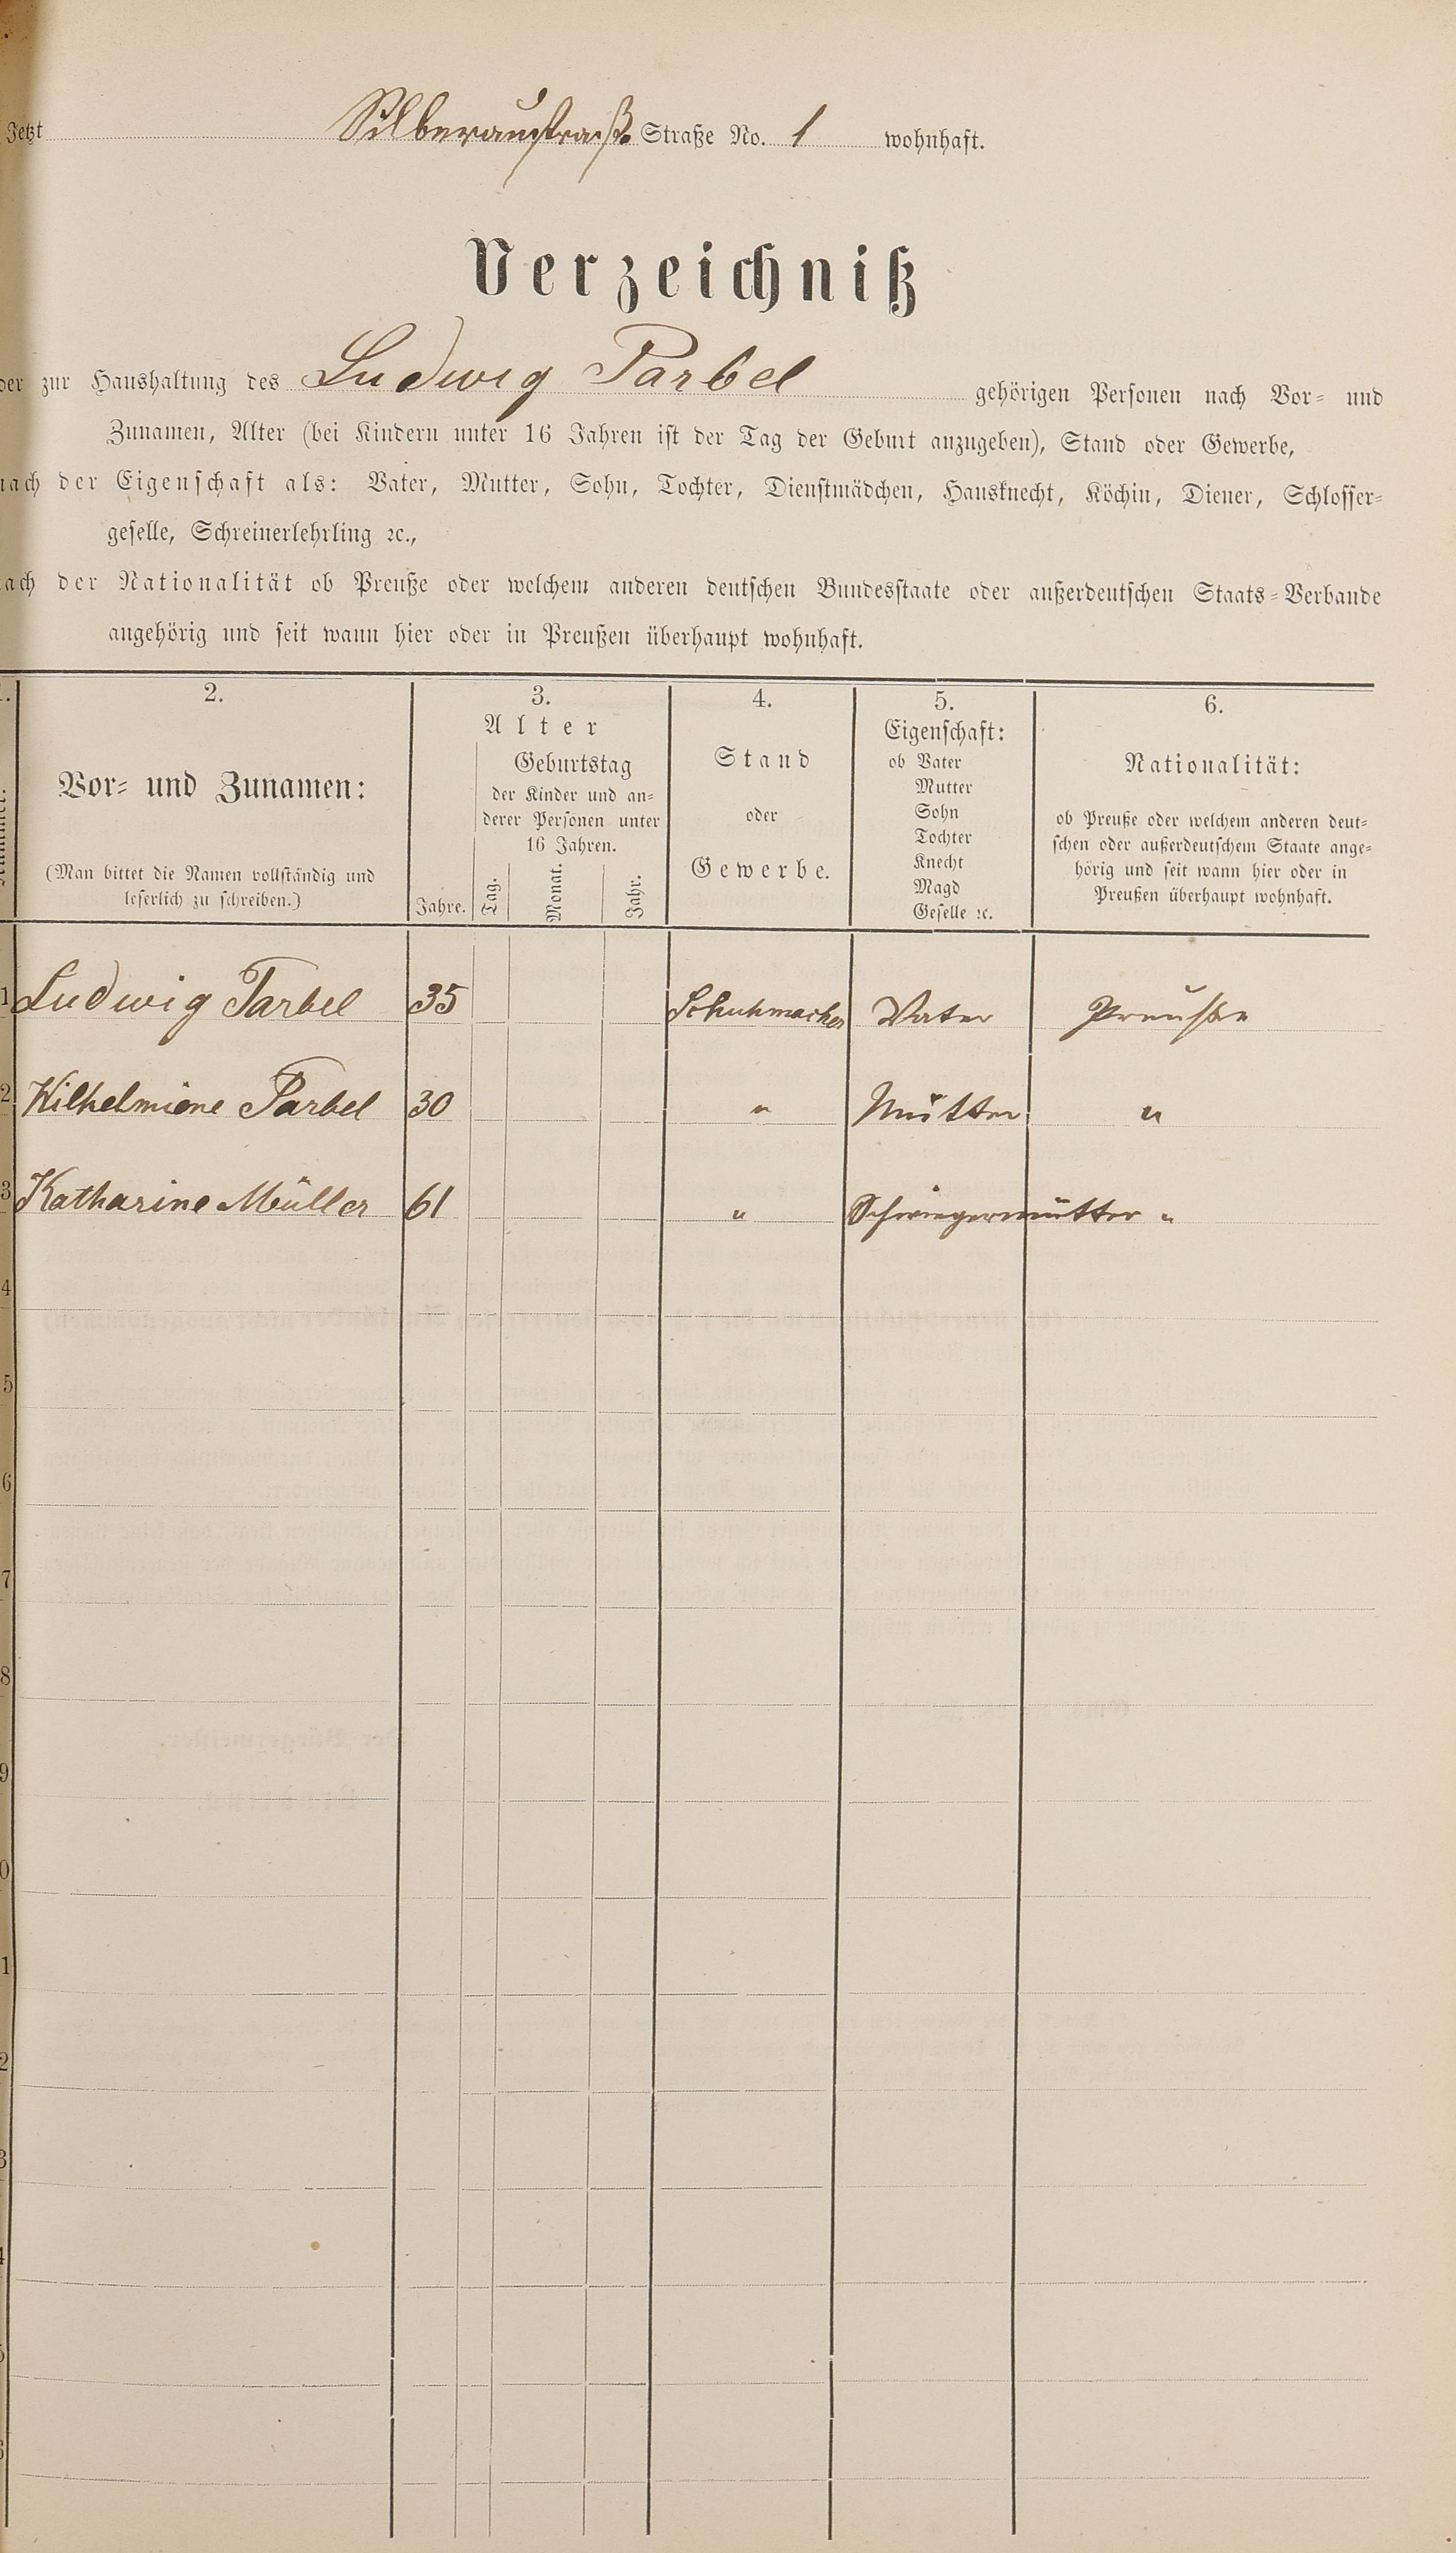 Jetzt Silberaustraße Straße No. 1 wohnhaft.
Verzeichniß
der zur Haushaltung des Ludwig Parbel gehörigen Personen nach Vor- und
Zunamen, Alter (bei Kindern unter 16 Jahren ist der Tag der Geburt anzugeben), Stand oder Gewerbe,
nach der Eigenschaft als: Vater, Mutter, Sohn, Tochter, Dienstmädchen, Hausknecht, Köchin, Diener, Schlosser-
geselle, Schreinerlehrling ꝛc.,
nach der Nationalität ob Preuße oder welchem anderen deutschen Bundesstaate oder außerdeutschen Staats-Verbande
angehörig und seit wann hier oder in Preußen überhaupt wohnhaft.
1. 2. 3. 4. 5. 6.
Vor- und Zunamen:
(Man bittet die Namen vollständig und
leserlich zu schreiben.)
Alter
Jahre.
Geburtstag
der Kinder und an-
derer Personen unter
16 Jahren.
Tag. Monat. Jahr.
Stand
oder
Gewerbe.
Eigenschaft:
ob Vater
Mutter
Sohn
Tochter
Knecht
Magd
Geselle ꝛc.
Nationalität:
ob Preuße oder welchem anderen deut-
schen oder außerdeutschem Staate ange-
hörig und seit wann hier oder in
Preußen überhaupt wohnhaft.
1 Ludwig Parbel 35 Schuhmacher Vater Preuße
2 Wilhelmiene Parbel 30 " Mutter "
3 Katharine Müller 61 " Schwiegermutter "
4
5
6
7
8
9
0
1
2
3
4
5
6